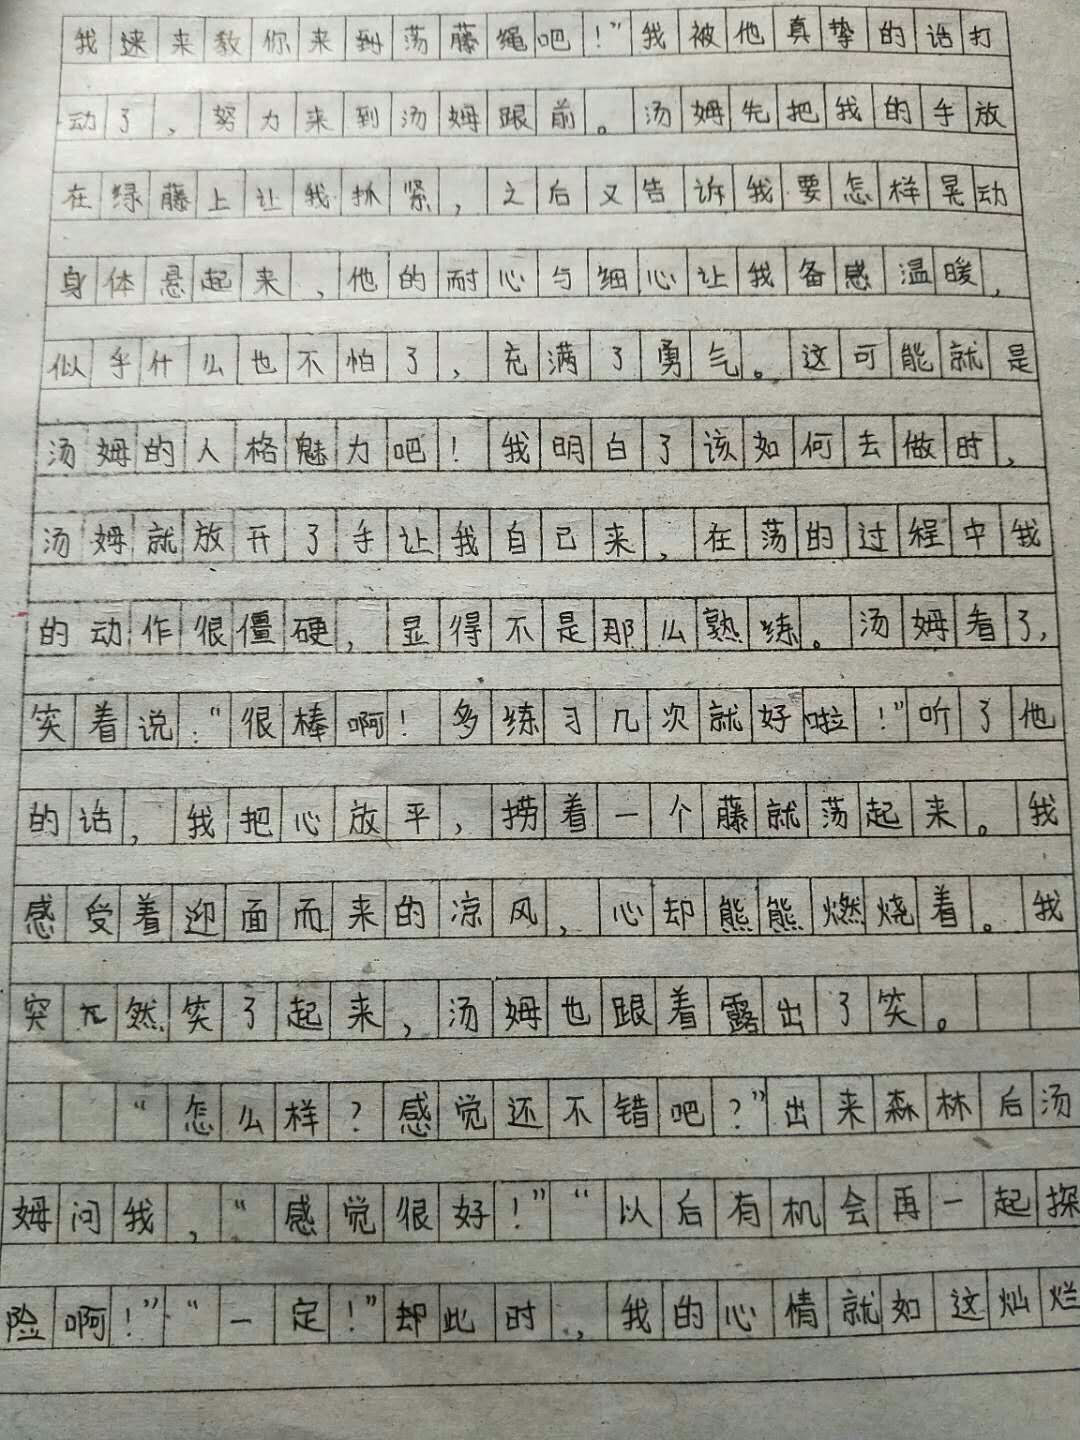 我速来教你来到荡藤绳吧！”我被他真挚的话打
动了，努力来到汤姆跟前。汤姆先把我的手放
在绿藤上让我抓紧，之后又告诉我要怎样晃动
身体悬起来，他的耐心与细心让我备感温暖，
似乎什么也不怕了，充满了勇气。这可能就是
汤姆的人格魅力吧！我明白了该如何去做时，
汤姆就放开了手让我自己来，在荡的过程中我
的动作很僵硬，显得不是那么熟练。汤姆看了，
笑着说：“很棒啊！多练习几次就好啦！”听了他
的话，我把心放平，捞着一个藤就荡起来。我
感受着迎面而来的凉风，心却熊熊燃烧着。我
突兀然笑了起来，汤姆也跟着露出了笑。
“怎么样？感觉还不错吧？”出来森林后汤
姆问我，“感觉很好！”“以后有机会再一起探
险啊！”“一定！”却此时，我的心情就如这灿烂